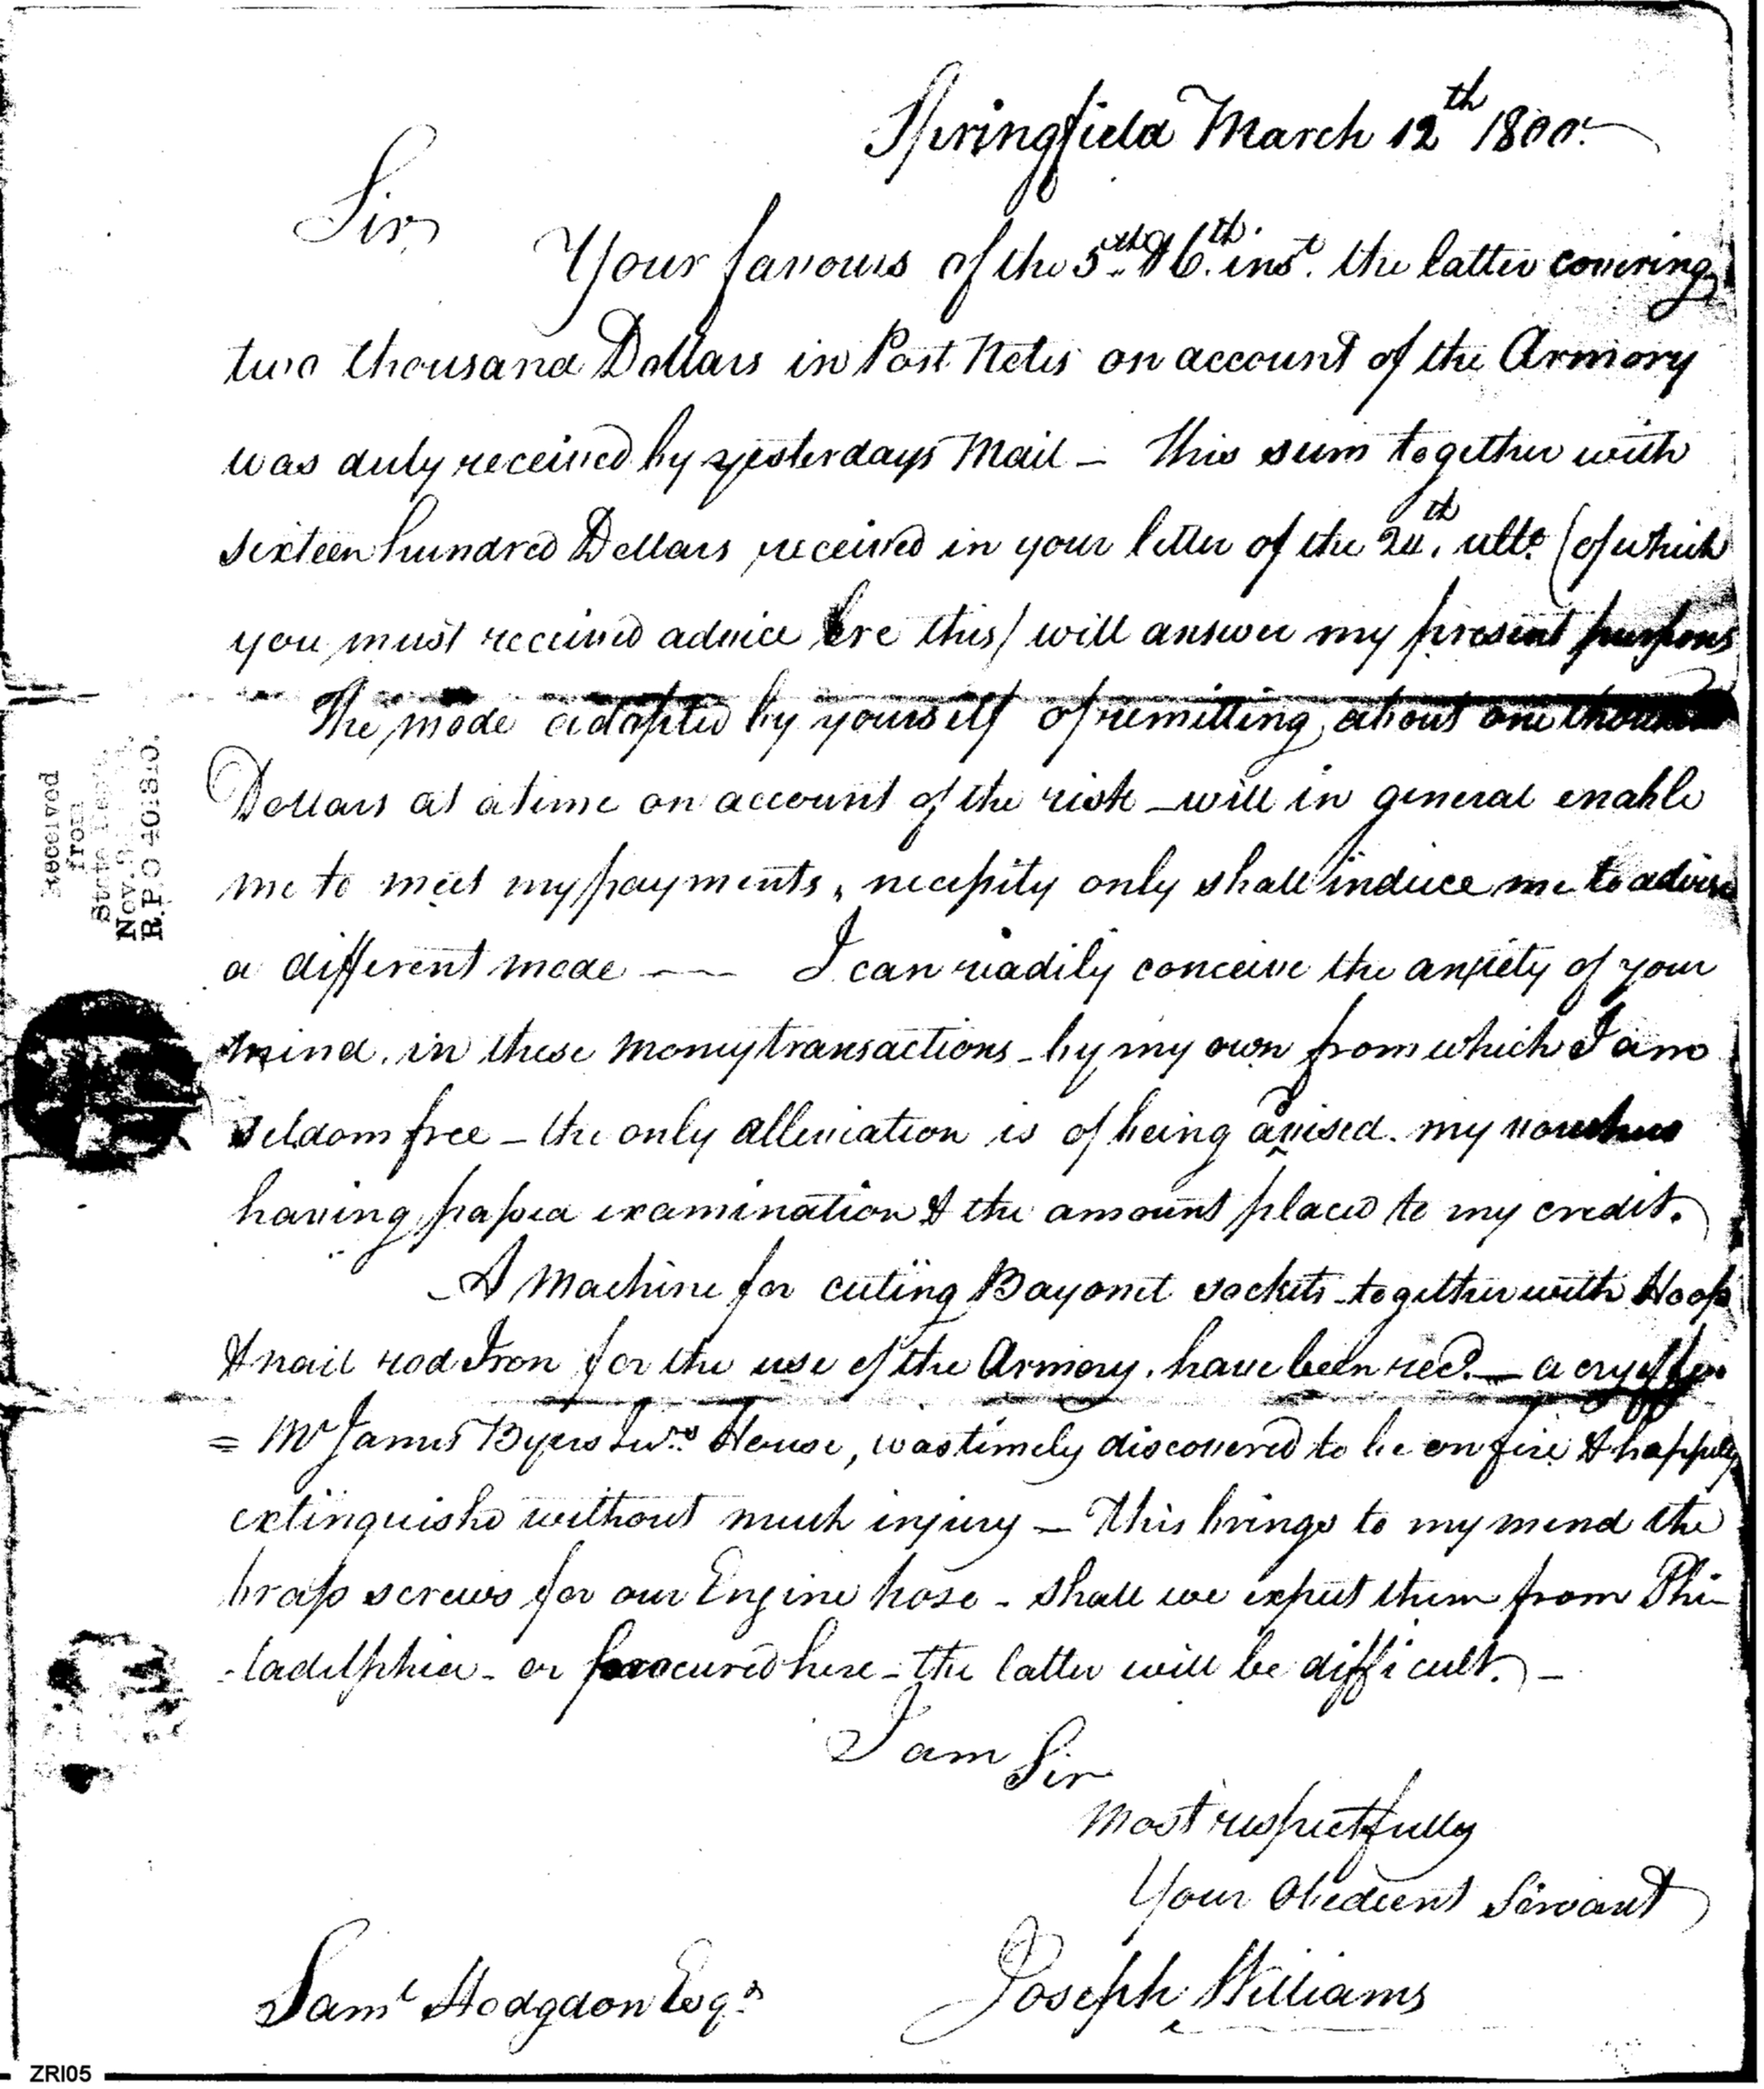 Springfield March 12th 1800.
Sir,
Your favours of the 5th & 6th. inst. the latter covering
two thousand Dollars in Post Notes on account of the Armory
was duly received by yesterdays Mail — This sum together with
sixteen hundred Dollars received in your letter of the 24th. ulto. (of which
you must received advice ere this) will answer my present purpose
The mode adopted by yourself of remitting about one thousand
Dollars at a time on account of the risk — will in general enable
me to meet my payments, necessity only shall induce me to advise
a different mode —— I can readily conceive the anxiety of your
mind, in these money transactions - by my own from which I am
seldom free — the only alleviation is of being avised. my vouchers
having passed examination & the amount placed to my credit.
A Machine for cuting Bayonet sockets - together with Hoop
& nail rod Iron for the use of the Armory, have been recd. — a cry of fire
= Mr James Byers Junr. House, was timely discovered to be on fire & happily
extinguishd without much injury — This brings to my mind the
brass screws for our Engine hose - shall we expect them from Phi-
-ladelphia - or procured here - the latter will be difficult. —
I am Sir
Most respectfully
Your Obedient Servant
Joseph Williams
Saml Hodgdon Esqr.
Received
from
State Dept.
Nov.
R.P.O 40:S:O.
ZRI05